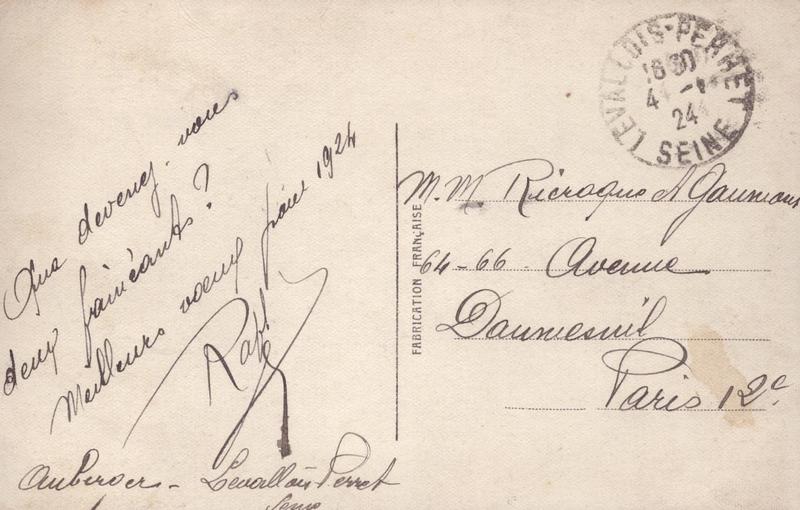 Que devenez-vous
deux fainéants?
Meilleurs voeux pour 1924
Raph
Levallois Perret
Seine
FABRICATION FRANÇAISE
LEVALLOIS-PERRET
1630
4 - 1
24
SEINE
M.M. Ricroque & Gaumont
64-66 - Avenue
Daumesnil
Paris 12e